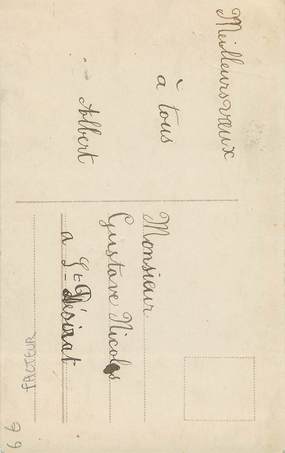 Meilleurs vœux
à tous
Albert
Monsieur
Gustave Nicolas
a St Désirat
FACTEUR
66